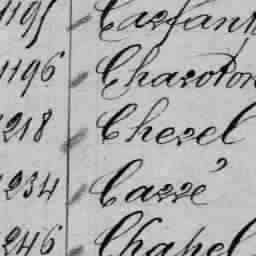 1195 Carfant
1196 Charoton
1218 Cherel
1234 Carré
1246 Chapel